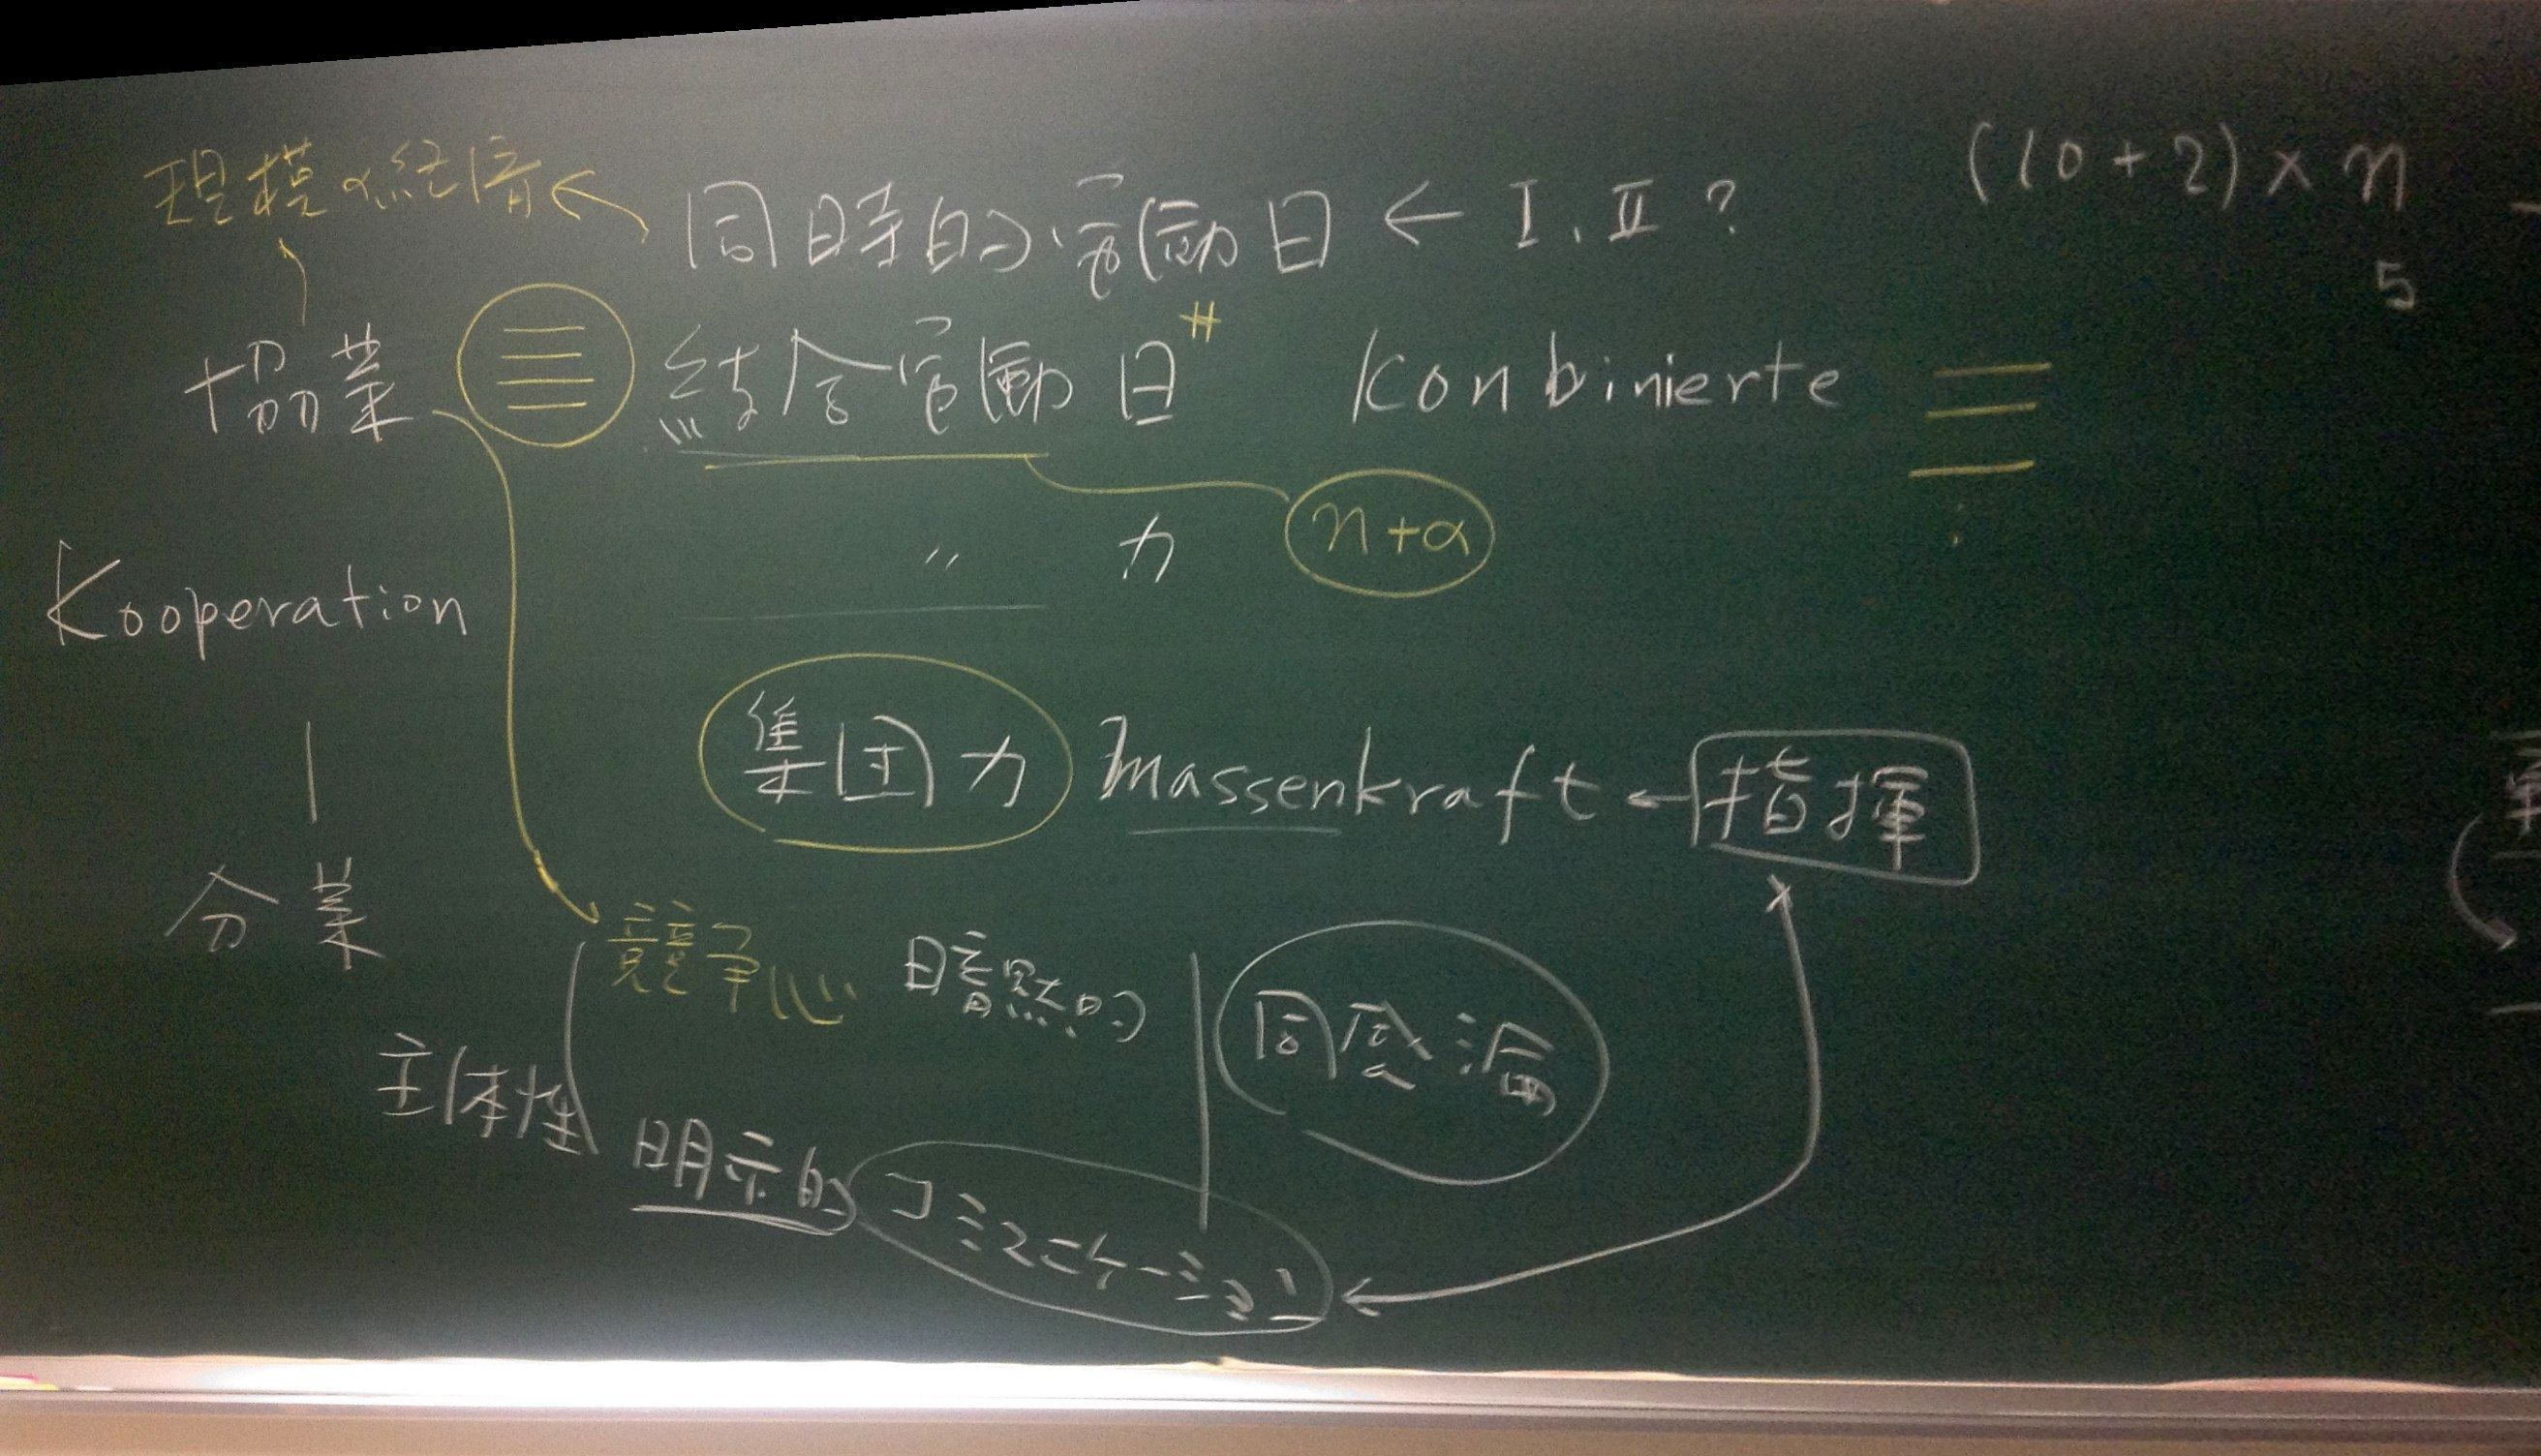 規模の経済
同時的労働日 ← I、II?
(10+2)×n
5
協業
結合労働日#
Konbinierte
〃 力
n+α
Kooperation
集団力 Massenkraft ← 指揮
分業
競争心 暗黙的
同感
主体性
明示的 コミュニケーション